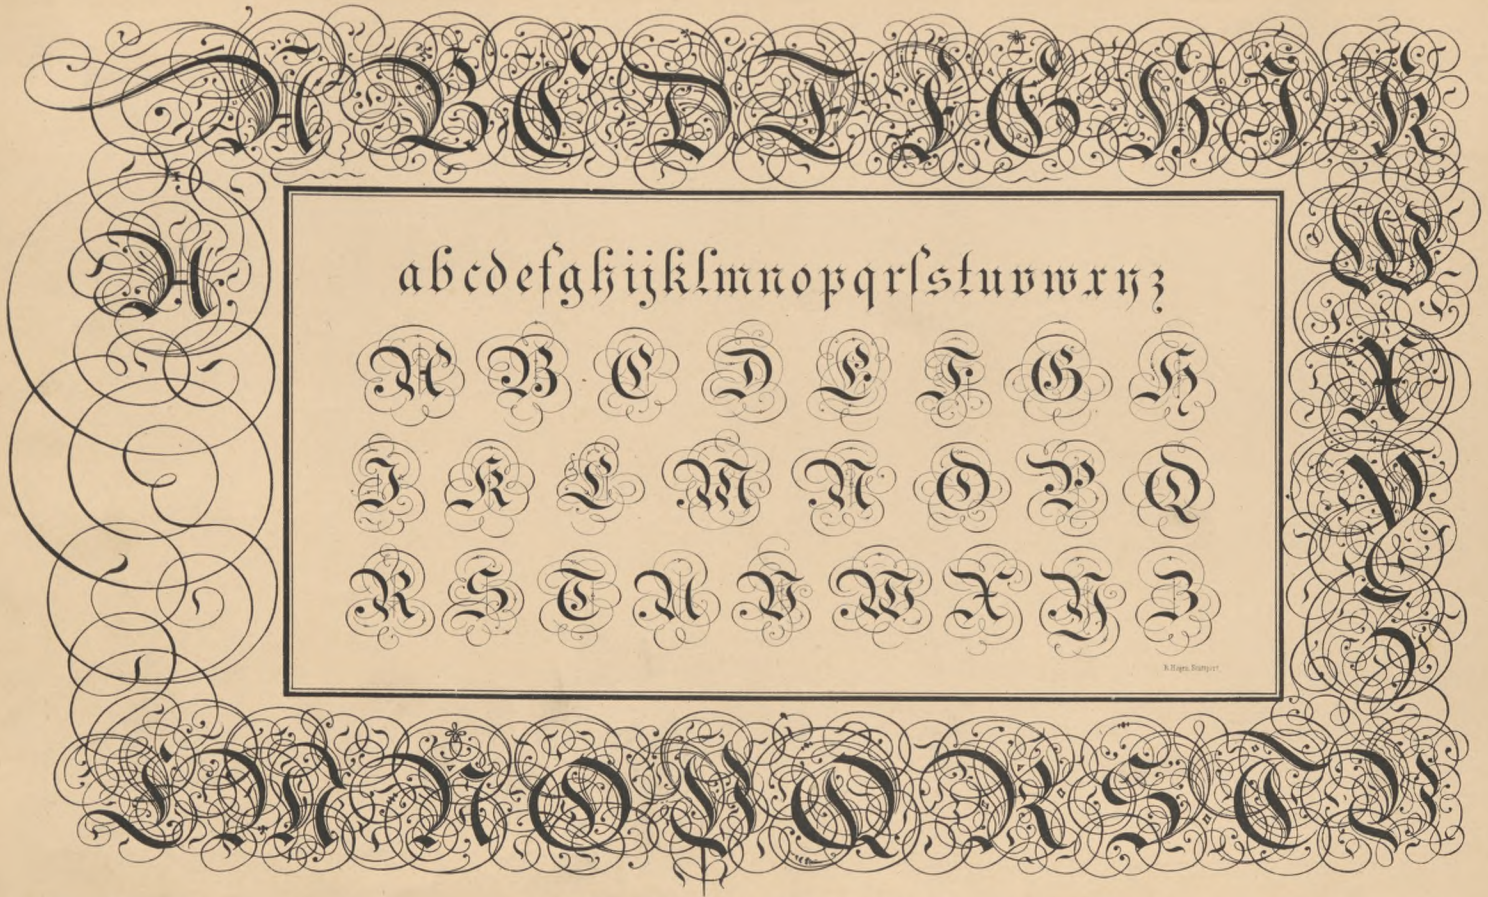 A B C D E F G H I K
A
a b c d e f g h i j k l m n o p q r ſ s t u v w x y z
A B C D E F G H
I K L M N O P Q
R S T U V W X Y Z
W
X
Y
Z
L M N O P Q R S T V